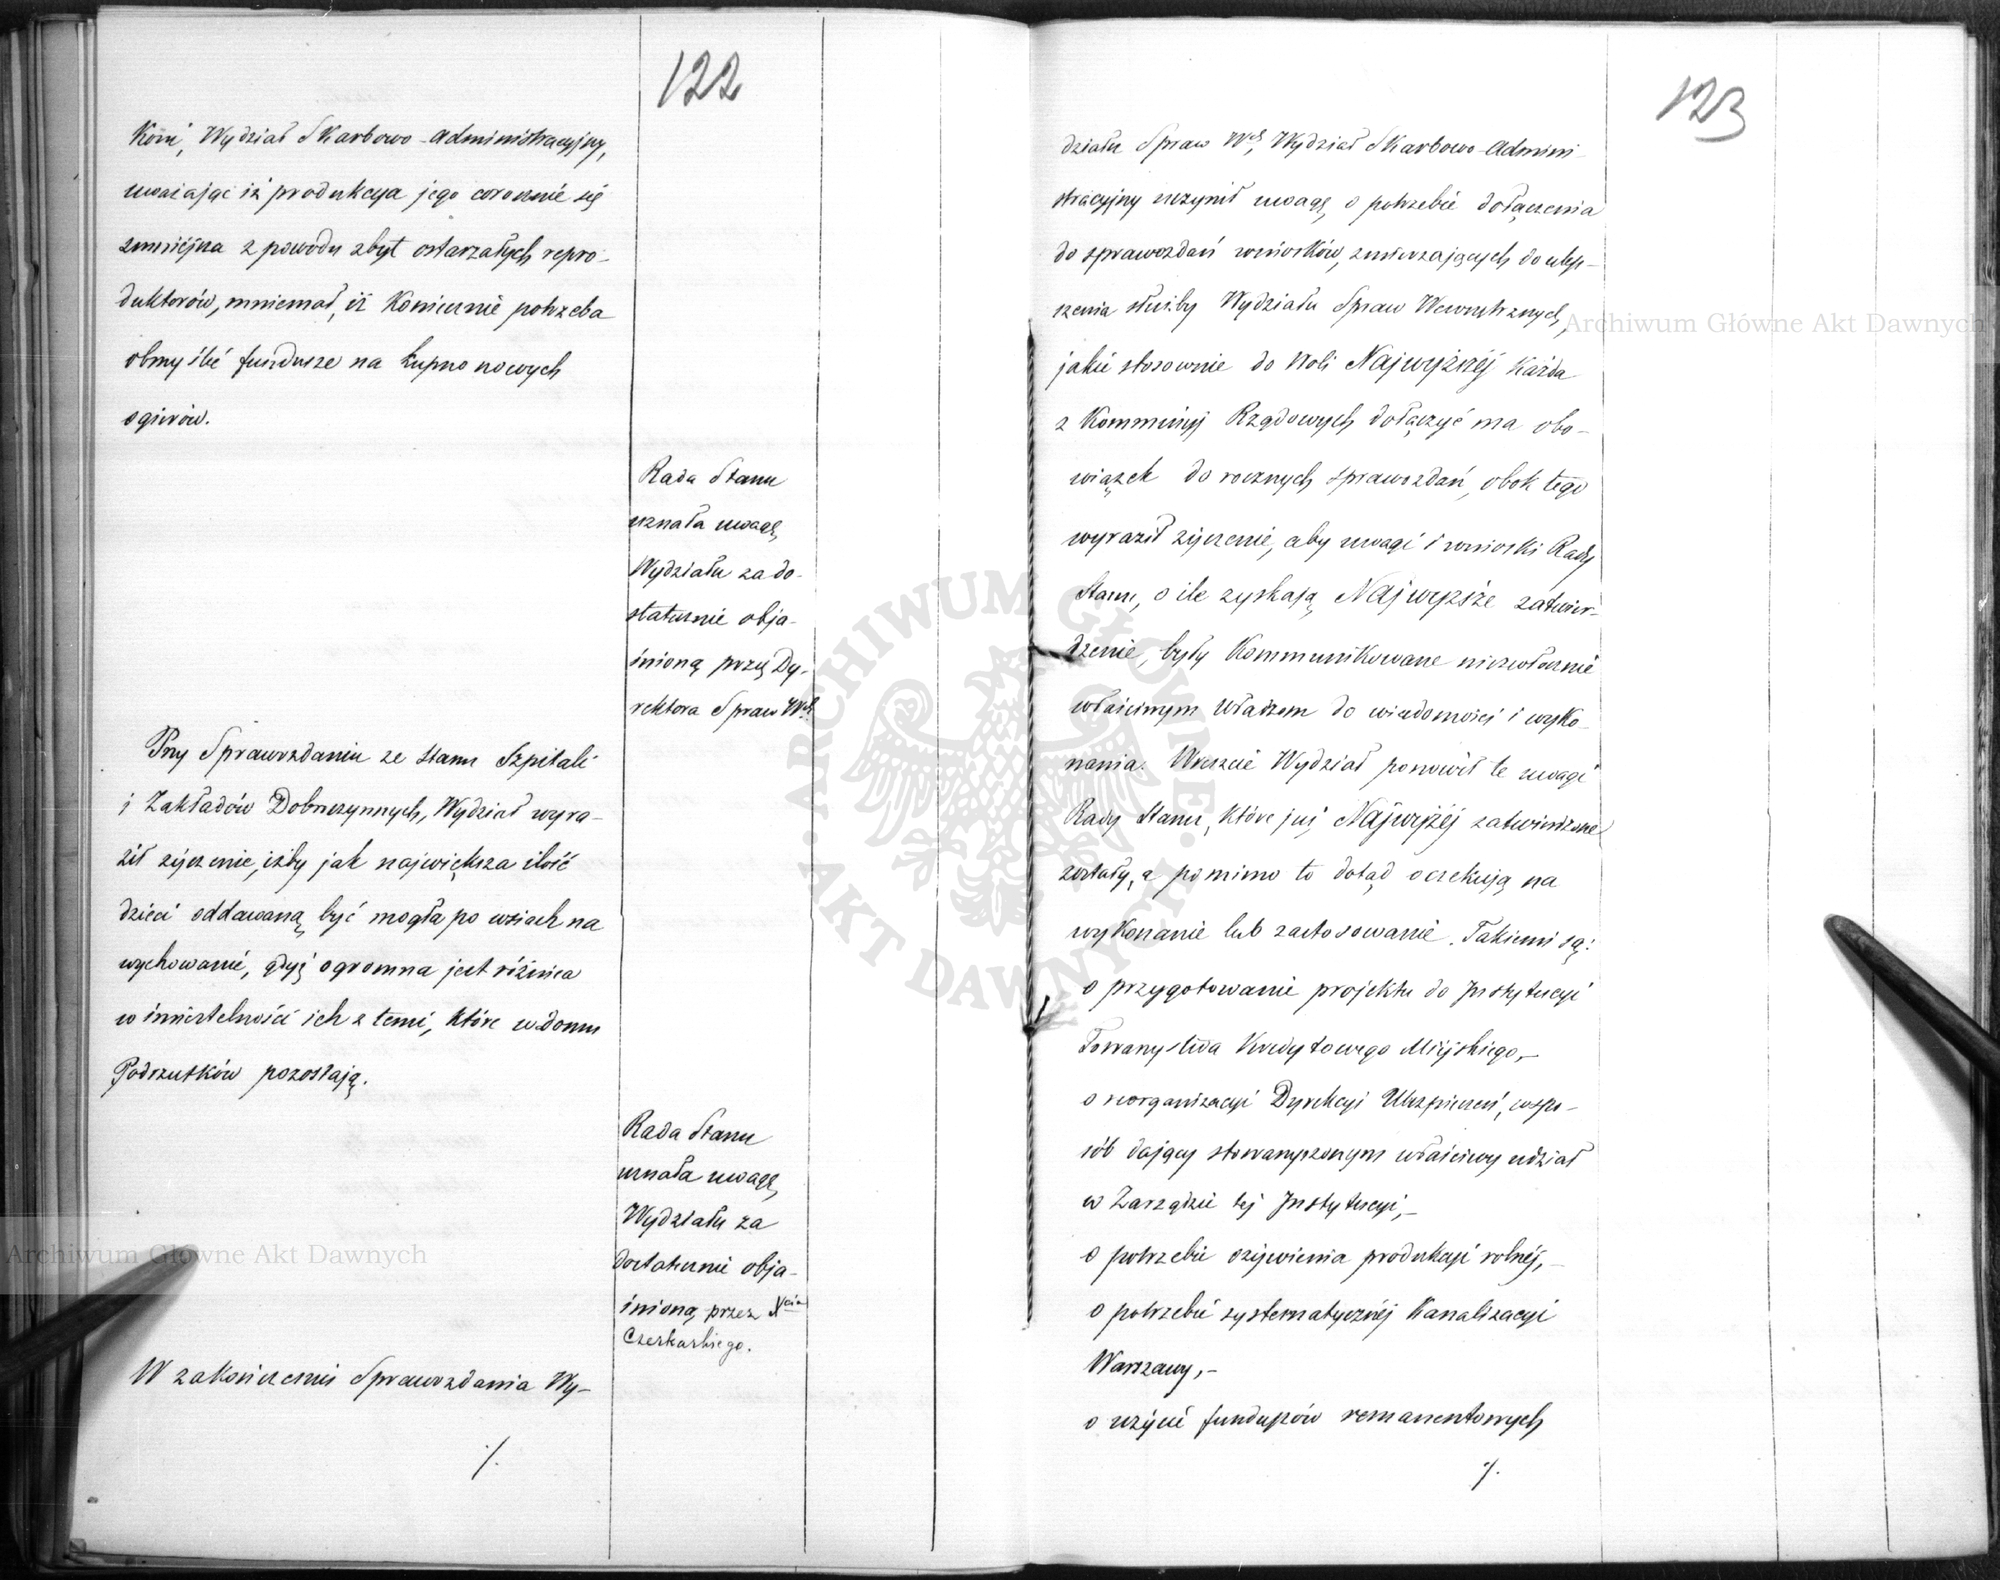 122
Koni, Wydział Skarbowo-Administracyjny,
uważając iż produkcya jego corocznie się
zmniejsza z powodu zbyt ostarzałych repro-
duktorów, mniemał, iż koniecznie potrzeba
obmyślić fundusze na kupno nowych
ogierów.
Rada Stanu
uznała uwagę
Wydziału za do-
statecznie obja-
śnioną przez Dy-
rektora Spraw Wch
Przy Sprawozdaniu ze stanu Szpitali
i Zakładów Dobroczynnych, Wydział wyra-
ził życzenie, iżby jak największa ilość
dzieci oddawaną być mogła po wsiach na
wychowanie, gdyż ogromna jest różnica
w śmiertelności ich z temi, które w domu
Podrzutków pozostają.
Rada Stanu
uznała uwagę
Wydziału za
dostatecznie obja-
śnioną przez Xcia
Czerkaskiego.
W zakończeniu Sprawozdania Wy-
./.
123
działu Spraw Wch, Wydział Skarbowo-Admini-
stracyjny uczynił uwagę o potrzebie dołączenia
do sprawozdań wniosków, zmierzających do ulep-
szenia służby Wydziału Spraw Wewnętrznych,
jakie stosownie do Woli Najwyższéj każda
z Kommissyj Rządowych dołączyć ma obo-
wiązek do rocznych sprawozdań, obok tego
wyraził życzenie, aby uwagi i wnioski Rady
Stanu, o ile zyskają Najwyższe zatwier-
dzenie, były kommunikowane niezwłocznie
właściwym Władzom do wiadomości i wyko-
nania. Wreszcie Wydział ponowił te uwagi
Rady Stanu, które już Najwyżéj zatwierdzone
zostały, a pomimo to dotąd oczekują na
wykonanie lub zastosowanie. Takiemi są:
o przygotowanie projektu do Instytucyi
Towarzystwa Kredytowego Miejskiego,-
o reorganizacyi Dyrekcyi Ubezpieczeń, w spo-
sób dający stowarzyszonym właściwy udział
w Zarządzie tej Instytucyi,-
o potrzebie ożywienia produkcyi rolnéj,-
o potrzebie systematycznéj kanalizacyi
Warszawy,-
o użycie funduszów remanentowych
./.
Archiwum Główne Akt Dawnych
Archiwum Główne Akt Dawnych
ARCHIWUM GŁÓWNE AKT DAWNYCH